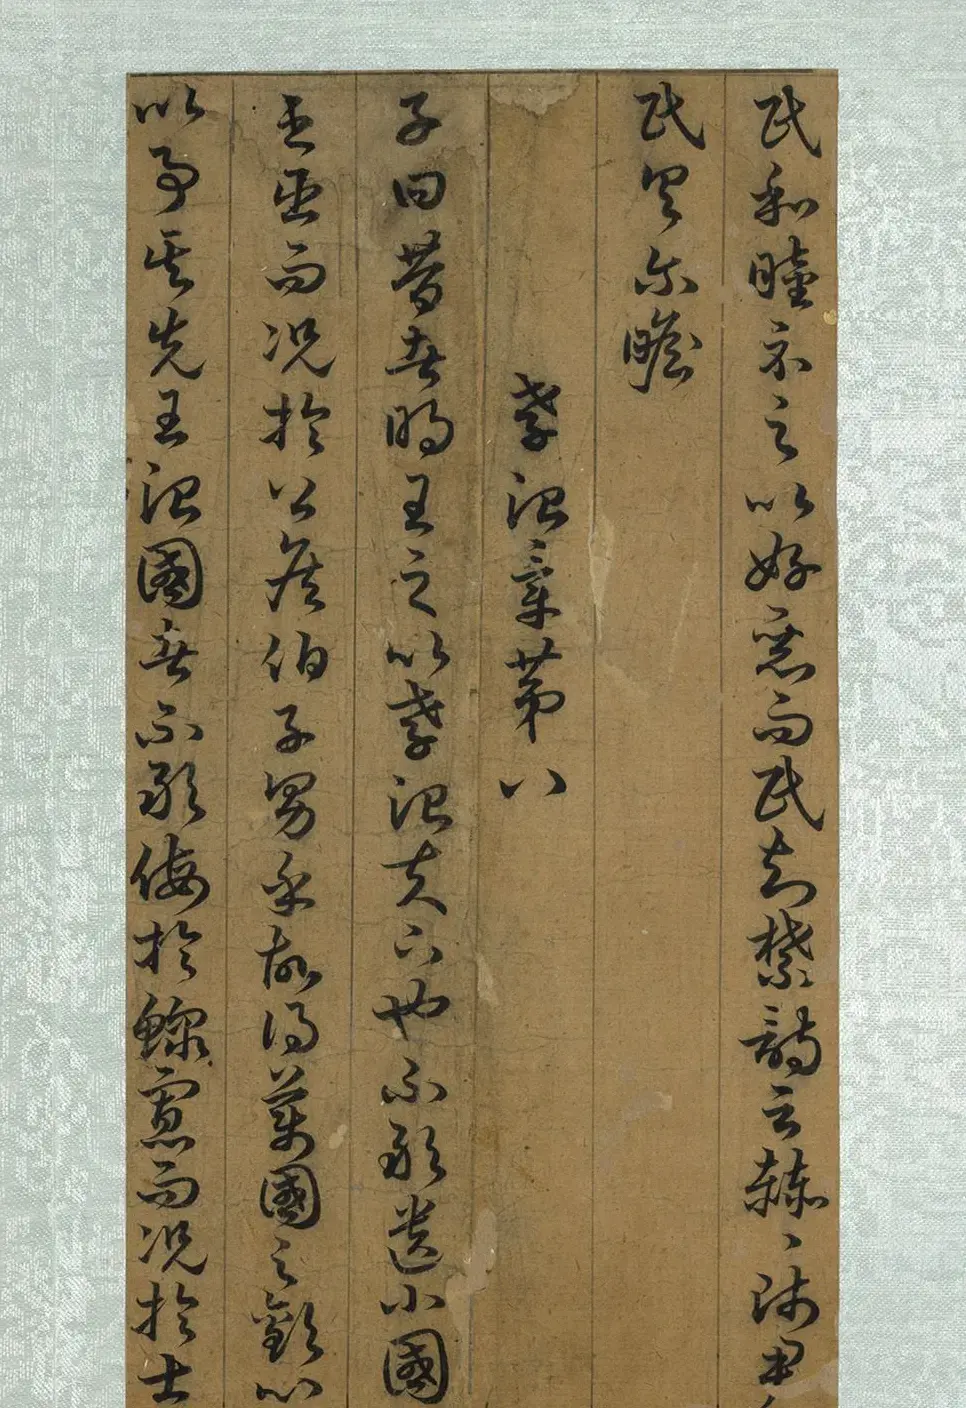 民和睦示之以好惡而民知禁詩云赫〻師尹
民具尔瞻
孝治章第八
子曰昔者明王之以孝治天下也不敢遺小國
之臣而況於公侯伯子男乎故得萬國之歡心
以事其先王治國者不敢侮於鰥寡而況於士